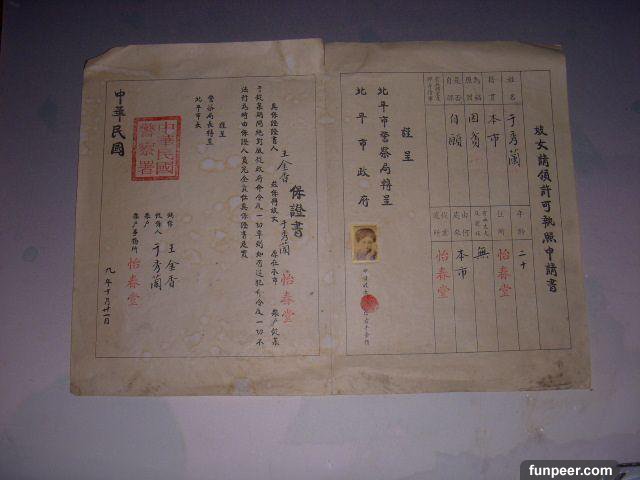 妓女請領許可執照申請書
姓名 于秀蘭 年齡 二十
籍貫 本市 住所 怡春堂
為娼原因 因貧 無
是否自願 自願 由何處來 本市
從業處所 怡春堂
謹呈
北平市警察局轉呈
北平市政府
保證書
具保證證書人 王金香 茲保得妓女 于秀蘭 原在本市 怡春堂 樂戶從業
于從業期間絕對服從政府命令及一切章則如有違犯命令及一切不
法行為時由保證人負完全責任具保證書是實
謹呈
警察局長轉呈
北平市長
王金香
被保人 于秀蘭
樂戶
樂戶事務所 怡春堂
中華民國警察署
中華民國 九年十月廿一日
funpeer.com